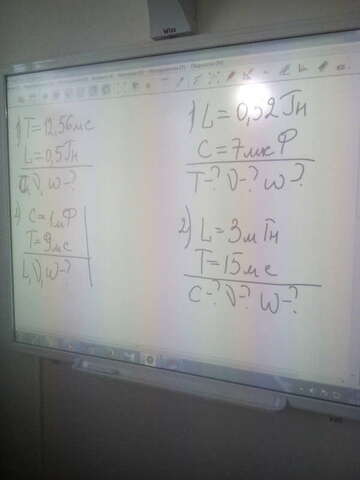 1) T=12,56мс
L=0,5Гн
C, ν, ω-?
2) C=1мФ
T=9мс
L, ν, ω-?
1) L=0,32Гн
C=7мкФ
T-? ν-? ω-?
2) L=3мГн
T=15мс
C-? ν-? ω-?